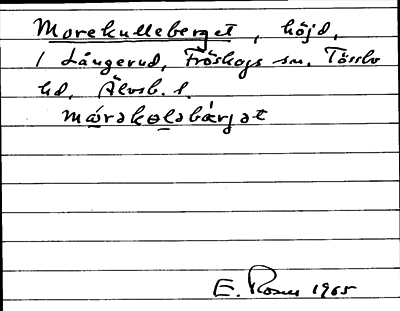 Morekulleberget, höjd,
/ Långerud, Fröskogs sn. Tössbo
hd, Älvsb. l.
mɷ́rəkɵləbærjət
E. Rosen 1965